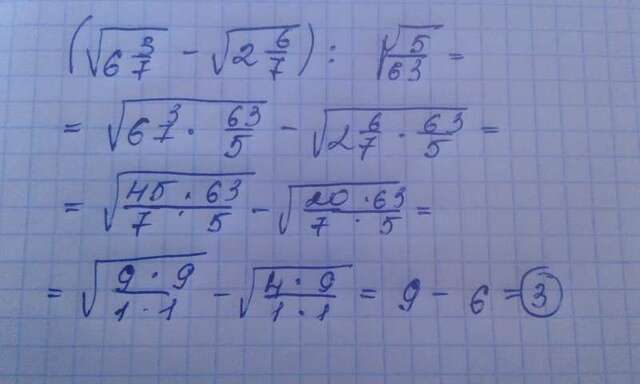 (√6 3/7 − √2 6/7) : √5/63 =
= √6 3/7 · 63/5 − √2 6/7 · 63/5 =
= √45 · 63/7 · 5 − √20 · 63/7 · 5 =
= √9 · 9/1 · 1 − √4 · 9/1 · 1 = 9 − 6 = 3